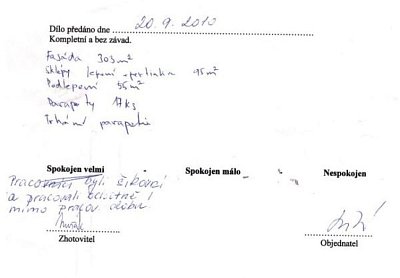 Dílo předáno dne 20.9.2010
Kompletní a bez závad.
Fasáda 303m²
sklepy lepení + perlinka 95m²
Podlepení 55m²
Parapety 17ks
Trhání parapetů
Spokojen velmi Spokojen málo Nespokojen
Pracovníci byli šikovní
a pracovali i
mimo pracov. dobu
Zhotovitel
Objednatel